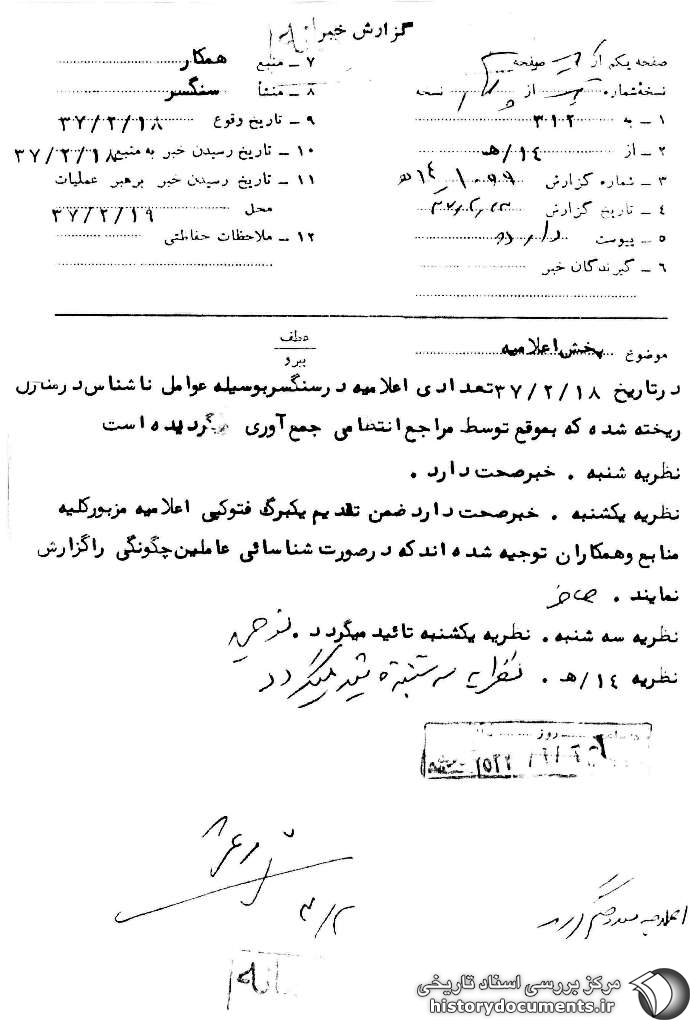 گزارش خبر
صفحه یکم از صفحه
نسخهٔ شماره از نسخه
۱ ـ به ۳۱۲
۲ ـ از ۱۴/هـ
۳ ـ شماره گزارش
۴ ـ تاریخ گزارش
۵ ـ پیوست دارد
۶ ـ گیرندگان خبر
۷ ـ منبع همکار
۸ ـ منشأ سنگسر
۹ ـ تاریخ وقوع ۳۷/۲/۱۸
۱۰ ـ تاریخ رسیدن خبر به منبع ۳۷/۲/۱۸
۱۱ ـ تاریخ رسیدن خبر برهبر عملیات
محل ۳۷/۲/۱۹
۱۲ ـ ملاحظات حفاظتی
موضوع پخش اعلامیه
عطف
پیرو
درتاریخ ۳۷/۲/۱۸ تعدادی اعلامیه درسنگسربوسیله عوامل ناشناس درمنازل
ریخته شده که بموقع توسط مراجع انتظامی جمع آوری گردیده است
نظریه شنبه . خبرصحت دارد .
نظریه یکشنبه . خبرصحت دارد ضمن تقدیم یکبرگ فتوکپی اعلامیه مزبورکلیه
منابع وهمکاران توجیه شده اند که درصورت شناسائی عاملین چگونگی راگزارش
نمایند .
نظریه سه شنبه . نظریه یکشنبه تائید میگردد .
نظریه ۱۴/هـ . نظریه سه شنبه تائید میگردد
روز
۳/۲
مرکز بررسی اسناد تاریخی
historydocuments.ir